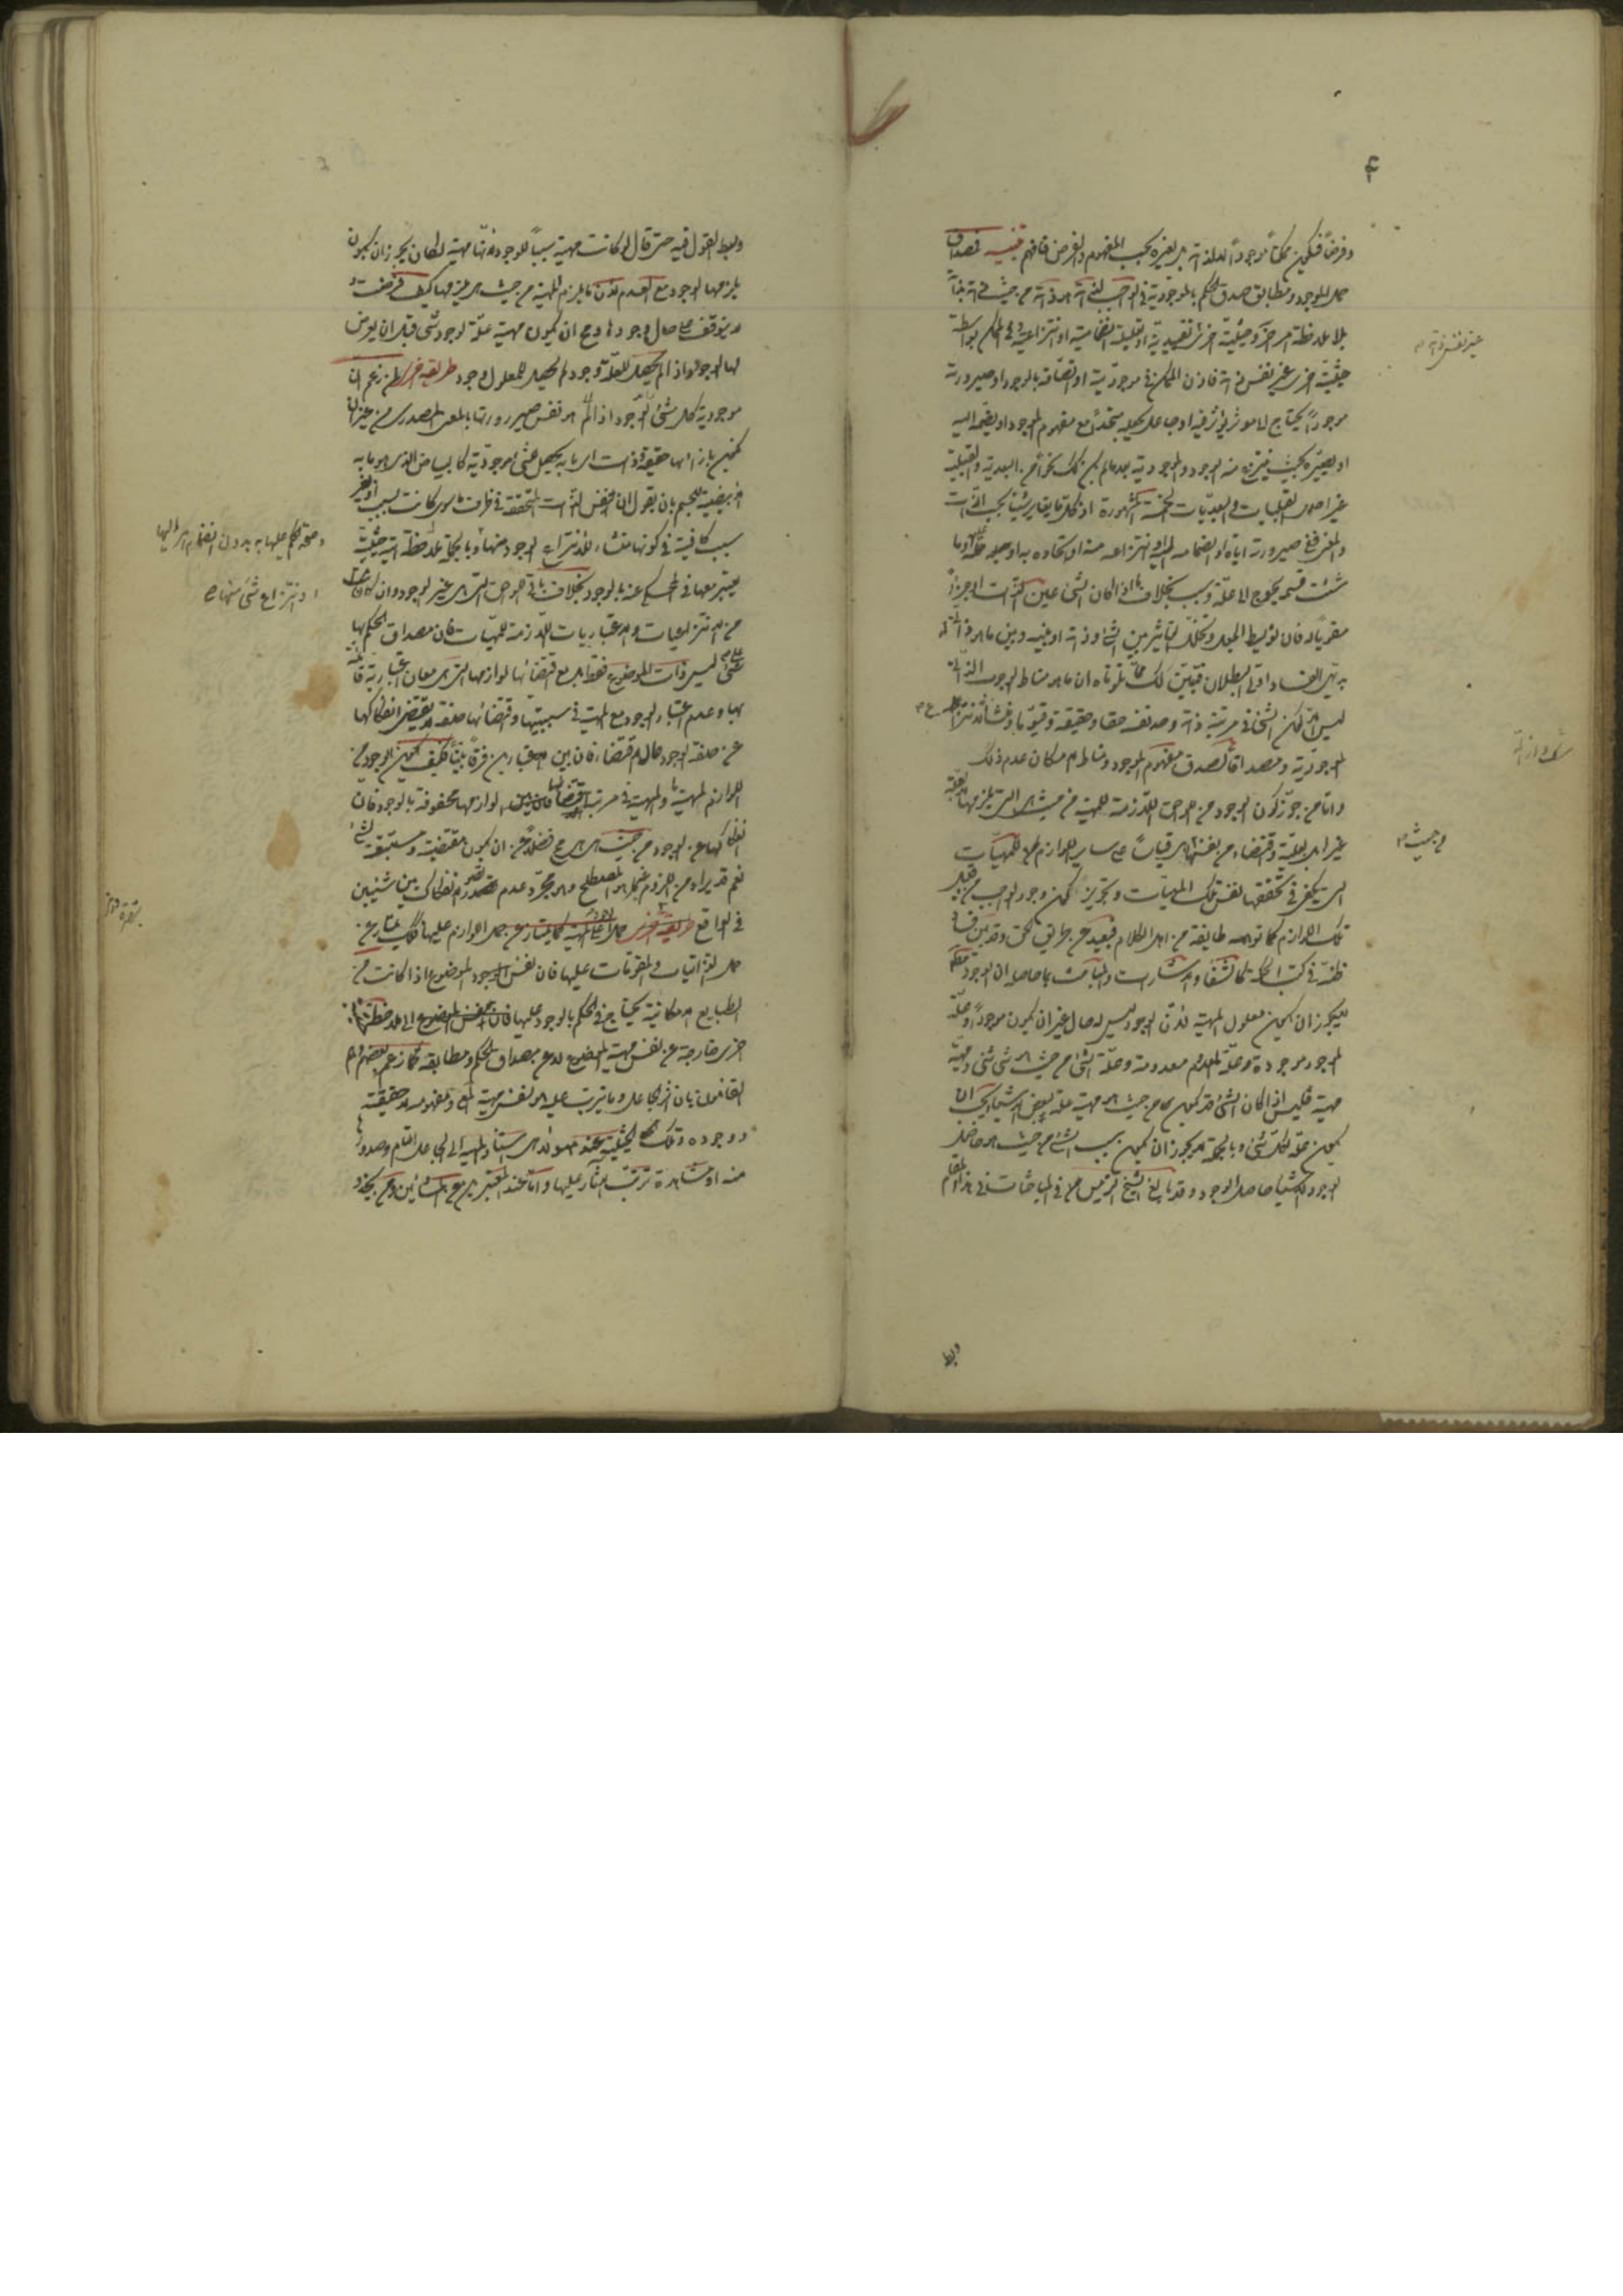 وفرضاً فيكون ممكناً موجوداً لا لذاته بل لغيره بحسب المفهوم والفرض فافهم تنبيه فمصداق
حمل الموجود ومطابق صدق الحكم بالموجودية في الواجب لذاته هو ذاته من حيث ذاته بذاته
بلا ملاحظة امر آخر وحيثية اخرى تقييدية او تعليلية انضمامية او انتزاعية وفي الممكن بواسطة
حيثية اخرى غير نفس ذاته فاذن الممكن في موجوديته او اتصافه بالوجود او صيرورته
موجوداً يحتاج الى مؤثر يؤثر فيه او جاعل يجعله متحداً مع مفهوم الموجود او يضمه اليه
او يصيره بحيث ينتزع منه الوجود والموجودية بعد ما لم يكن كك نحواً من البعدية والقبلية
غير اصول القبليات والبعديات الخمسة المشهورة اذ كل ما يغاير شيئاً بحسب الذات
والمعنى ففي صيرورته اياه او انضمامه اليه او انتزاعه منه او اتحاده به او حمله عليه وما
شئت فسمه يحوج الى علة وسبب بخلاف ما اذا كان الشئ عين الذات او جزءاً
مقوماً له فان توسيط الجعل وتخلل التأثير بين الشئ وذاته او بينه وبين ما هو ذاتي له
بديهي الفساد اولي البطلان فتبين لك مما تلوناه ان ما هو مناط الوجوب الذاتي
ليس الا كون الشئ في مرتبة ذاته وحد نفسه حقا وحقيقة وقيوما ومنشأ لانتزاع
الموجودية ومصداقاً لصدق مفهوم الموجود ومناط الامكان عدم ذلك
واما من جوز كون الوجود من اللوازم اللازمة للمهية من حيث هي التي يلزمها
غير العلية واقتضاء من نفسها هي قياساً على ساير اللوازم للمهيات
التي يكفي في تحققها نفس تلك المهيات وتجويز كون وجود الواجب من قبيل
تلك اللوازم كما توهمه طايفة من اهل الكلام فبعيد عن طريق الحق وقد بين فساد
ظنه في كتب الحكمة كالشفاء والاشارات والمباحثات بما حاصله ان الوجود
لا يجوز ان يكون معلول المهية لان الوجود ليس له حال غير ان يكون موجوداً وعلة
الموجود موجودة وعلة المعدوم معدومة وعلة الشئ من حيث هو شئ شئ ومهية
مهية فليس اذا كان الشئ قد يكون من حيث هو مهية علة لبعض الاشياء يجب ان
يكون علة لكل شئ وبالجملة لا يجوز ان يكون سبب الشئ من حيث هو حاصل
الوجود الا شيئاً حاصل الوجود وقد بالغ الشيخ الرئيس في المباحثات في هذا المقام
وبسط
غير نفس ذاته
من حيث
وبسط القول فيه حتى قال لو كانت مهية سبباً للوجود لانها مهية لكان يجوز ان يكون
يلزمها الوجود مع العدم لان ما يلزم المهية من حيث هي يلزمها كيف فرضت و
لا يتوقف على حال وجودها ومح ان يكون مهية علة لوجود شئ قبل ان يعرض
لها الوجود واذا لم يحصل للعلة وجود لم يحصل للمعلول وجود طريقة اخرى ظن زعم ان
موجودية كل شئ هو نفس صيرورتها بالمعنى المصدري من غير ان
يكون بازائها حقيقة وذات اي ما به يحصل معنى الموجودية كالبياض الذي هو ما به
الابيضية للجسم بان يقول ان نفس الذات المتحققة في ظرف ما سوى كانت بسبب او بغير
سبب كافية في كونها منشاء لانتزاع الوجود منها وبالجملة لا ملاحظة اية حيثية
يعتبر معها في المحكي عنه بالوجود بخلاف باقي اللواحق التي هي غير الوجود وان كان
من الانتزاعيات والاعتباريات اللازمة للمهيات فان مصداق الحكم بها
ليس ذات الموضوع فقط بل مع اقتضائها لوازمها التي هي معان اعتبارية قائمة
بها وعدم اعتبار الوجود مع المهية في سببيتها واقتضائها صفة لا يقتضي انفكاكها
عن صفة الوجود حال الاقتضاء فان بين الاعتبارين فرقاً بيناً فكيف يكون الوجود من
اللوازم للمهية والمهية في مرتبة اقتضائها لوازمها محفوفة بالوجود فان
انفكاكها عن الوجود من حيث هي هي مح فضلاً عن ان يكون مقتضية ومستتبعة لشئ
نعم قد يراد من اللزوم غير ما هو المصطلح وهو مجرد عدم تصور انفكاك بين شيئين
في الواقع طريقة اخرى حمل الوجود على المهية كما يمتاز عن حمل اللوازم عليها فكك يمتاز عن
حمل الذاتيات والمقومات عليها فان نفس الموضوع اذا كانت من
الطبايع الامكانية يحتاج في الحكم بالوجود عليها الى ملاحظة
اخرى خارجة عن نفس مهية الموضوع لا عن مصداق الحكم ومطابقه كما زعم بعضهم وهم
القائلون بان اثر الجاعل وما يترتب عليه هو نفس مهية الشئ ومفهومه لا حقيقته
ووجوده وتلك الحيثية عند هؤلاء هي استناد المهية الى الجاعل التام وصدورها
منه او مشاهدة ترتب الآثار عليها واما عند المعتبرين من المشائين
وصحة الحكم عليها به بدون انضمام امر اليها
او انتزاع شئ منها